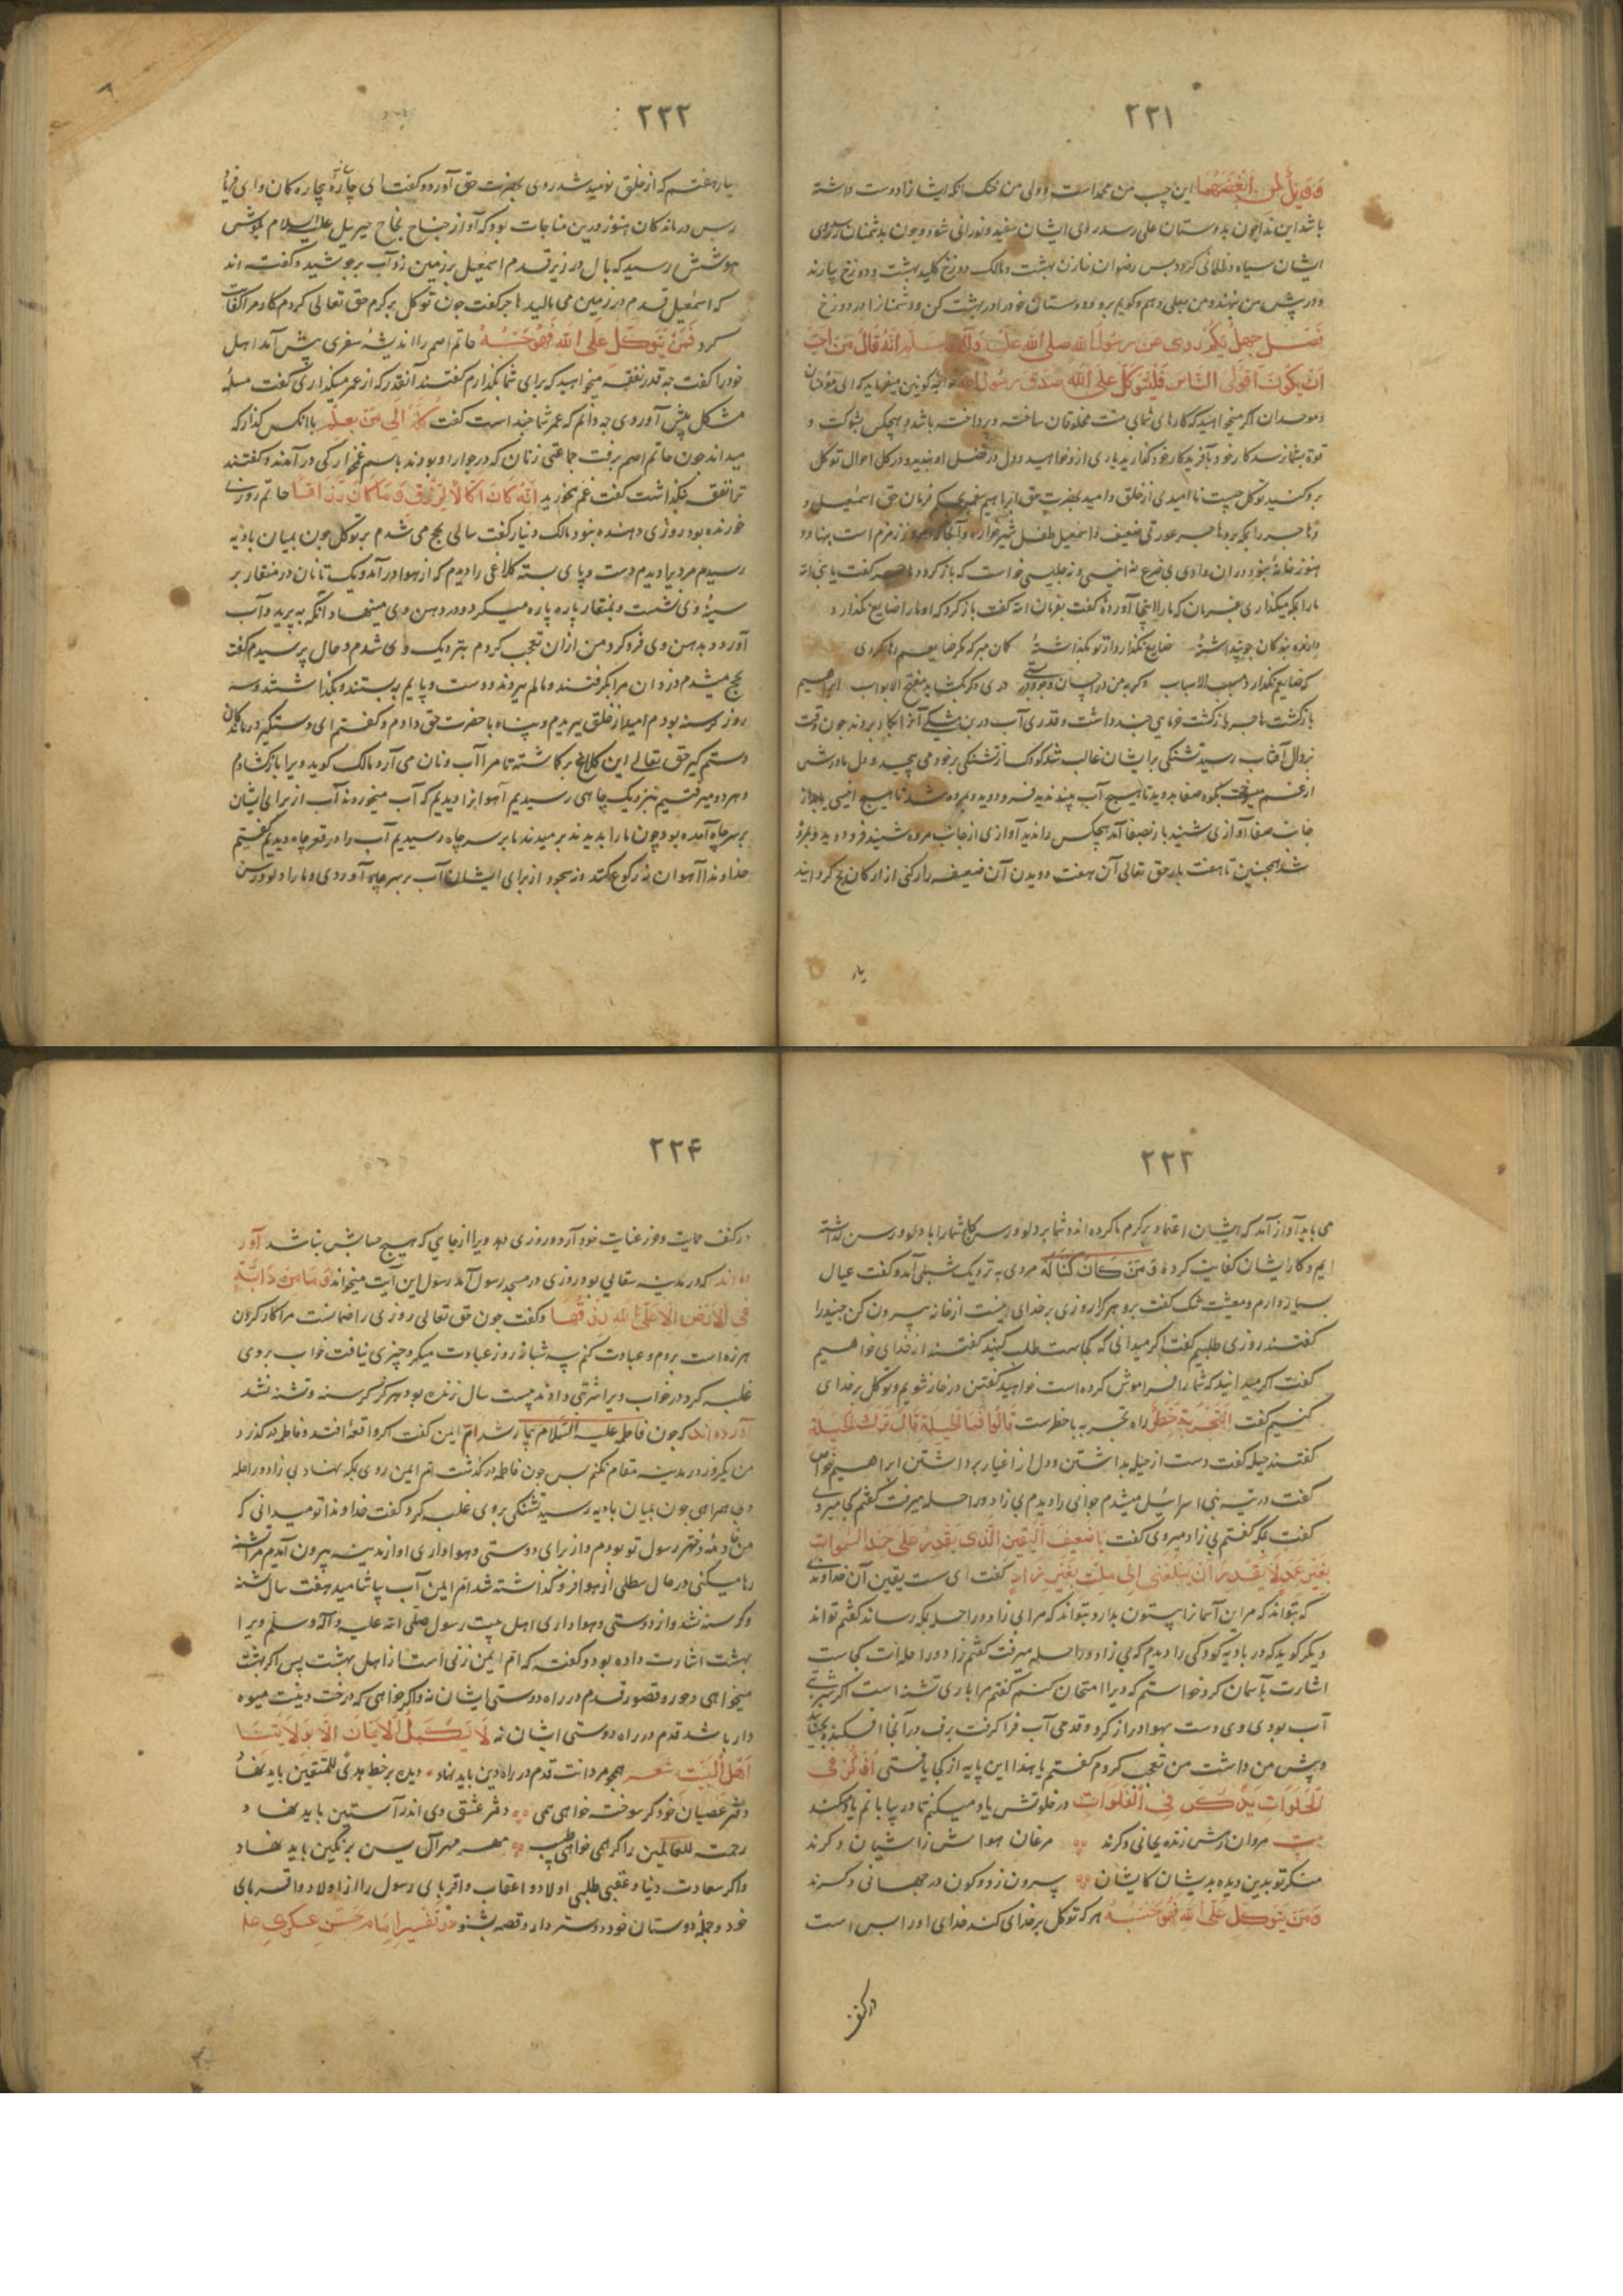 ۲۲۱
وَوَیلٌ لمن اَبغضهما این چب من محمد است و ولی من خنک آنکه ایشانرا دوست داشته
باشد این ندا چون بدوستان علی رسد روی ایشان سفید و نورانی شود و چون بدشمنان رسد روی
ایشان سیاه و ظلمانی کردد پس رضوان خازن بهشت و مالک دوزخ کلید بهشت و دوزخ بیارند
و در پیش من نهند و من بعلی دهم و کویم برو و دوستان خود را در بهشت کن و دشمنانرا در دوزخ
فصل چهل یکم روی عن رسول الله صلی الله علیه وآله وسلم انّه قال من احبّ
ان یکون اقوی الناس فلیتوکل علی الله صدق رسول الله خواجه کونین میفرماید که ای مؤمنان
و موحدان اکر میخواهید که کارهای شما بی منت مخلوقان ساخته و پرداخته باشد و هیچکس بشوکت و
قوة بشما نرسد کار خود بآفریدکار خود کذارید یاری ازو خواهید و دل در فضل او بندید و در کل احوال توکل
برو کنید توکل چیست ناامیدی از خلق و امید بحضرت حق ابراهیم پیغمبر بحکم فرمان حق اسمعیل و
هاجر را بمکه برد هاجر عورتی ضعیف و اسمعیل طفل شیرخواره و آنجا که امروز زمزم است بنهاد و
هنوز خانه نبود در ان وادی بی ضرع نه انیسی و نه جلیسی خواست که باز کردد هاجر کفت یا نبی الله
ما را بکه میکذاری بفرمان که ما را اینجا آورده‌ٔ کفت بفرمان الله کفت باز کرد که او ما را ضایع نکذارد
که ضایع نکذارد مسبب الاسباب
در دیکر کشاید مفتح الابواب ابراهیم
بازکشت هاجر بازکشت خرمای چند داشت و قدری آب در بن مشکی آنرا بکار بردند چون وقت
زوال آفتاب رسید تشنکی بر ایشان غالب شد کودک از تشنکی بر خود می پیچید و دل مادرش
از غم میسوخت بکوه صفا بردوید تا هیچ آب بیند ندید فرو دوید و بمروه شد تا هیچ انیسی یابد از
جانب صفا آوازی شنید باز بصفا آمد هیچکس را ندید آوازی از جانب مروه شنید فرو دوید و بمروه
شد همچنین تا هفت بار حق تعالی آن هفت دویدن آن ضعیفه را رکنی از ارکان حج کردانید
بار
۲۲۲
بار هفتم که از خلق نومید شد روی بحضرت حق آورد و کفت ای چاره بیچاره کان و ای فریاد
رس درمانده کان هنوز درین مناجات بود که آواز جناح نجاح جبریل علیه السلام بکوش
هوشش رسید که بال در زیر قدم اسمعیل بر زمین زد و آب برجوشید و کفته اند
که اسمعیل قدم در زمین می مالید هاجر کفت چون توکل بر کرم حق تعالی کردم کار مرا کفایت
کرد فمن یتوکل علی الله فهو حسبه حاتم اصم را اندیشهٔ سفری پیش آمد اهل
خود را کفت چه قدر نفقه میخواهید که برای شما بکذارم کفتند آنقدر که از عمر میکذاری کفت مسئلهٔ
مشکل پیش آوردی چه دانم که عمر شما چند است کفت کِلهُ الی من یعلم باانکس کذار که
میداند چون حاتم اصم برفت جماعتی زنان که در جوار او بودند باسم غمخوارکی در آمدند و کفتند
ترا نفقه نکذاشت کفت غم مخورید انّه کان اکالا لرزق و ما کان رزاقا حاتم روزی
خورنده بود روزی دهنده نبود مالک دینار کفت سالی بحج می شدم بر توکل چون بمیان بادیه
رسیدم مردیرا دیدم دست و پای بسته کلاغی را دیدم که از هوا در آمد و یک تا نان در منقار بر
سینهٔ وی نشست و بمنقار پاره پاره میکرد و در دهن وی مینهاد آنکه بپرید و آب
آورد و بدهن وی فرو کرد من ازان تعجب کردم بنزدیک وی شدم و حال پرسیدم کفت
بحج میشدم دزدان مرا بکرفتند و مالم ببردند و دست و پایم ببستند و بکذاشتند و سه
روز کرسنه بودم امید از خلق ببریدم و پناه با حضرت حق دادم و کفتم ای دستکیر درمانده کان
دستم کیر حق تعالی این کلاغ بر کماشته تا مرا آب و نان می آرد مالک کوید ویرا بازکشادم
و هر دو میرفتیم بنزدیک چاهی رسیدیم آهوانرا دیدیم که آب میخوردند آب از برای ایشان
بر سر چاه آمده بود چون ما را بدیدند برمیدند ما بر سر چاه رسیدیم آب را در قعر چاه دیدیم کفتیم
خداوندا آهوان نه رکوع کنند و نه سجود از برای ایشان آب بر سر چاه آوردی و ما را دلو و رسن
۲۲۳
می باید آواز آمد که ایشان اعتماد بر کرم ما کرده اند و شما بر دلو و رسن لاجرم شما را با دلو و رسن کذاشته
ایم و کار ایشان کفایت کرده و من کان لنا کنا له مردی به نزدیک شبلی آمد و کفت عیال
بسیار دارم و معیشت تنک کفت برو هر کرا روزی بر خدای نیست از خانه بیرون کن جنید را
کفتند روزی طلبیم کفت اکر میدانی که کجاست طلب کنید کفتند از خدای خواهیم
کفت اکر میدانید که شما را فراموش کرده است خواهید کفتن در خانه شویم و توکل بر خدای
کنیم کفت التجربة خطرٌ راه تجربه با خطرست قالوا فما الحیلة قال ترک الحیلة
کفتند حیله کفت دست از حیله بداشتن و دل از اغیار برداشتن ابراهیم خواص
کفت در تیه بنی اسرائیل میشدم جوانی را دیدم بی زاد و راحله میرفت کفتم کجا میروی
کفت بمکه کفتم بی زاد میروی کفت یا ضعیف الیقین الذی یقدر علی حمل السموات
بغیر عمد لا یقدر ان یبلغنی الی مکة بغیر زاد کفت ای سست یقین آن خداوندی
که بتواند که مر این آسمانرا بیستون بدارد بتواند که مرا بی زاد و راحله بمکه رساند کفتم تواند
دیکر کوید که در بادیه کودکی را دیدم که بی زاد و راحله میرفت کفتم زاد و راحله ات کجاست
اشارت بآسمان کرد خواستم که ویرا امتحان کنم کفتم مرا باری تشنه است اکر شربتی
آب بودی وی دست بهوا دراز کرد و قدحی آب فرا کرفت برف در آنجا افکنده
و پیش من داشت من تعجب کردم کفتم یا هذا این پایه از کجا یافتی اذکرُ فی
الخلوات یذکرنی فی الفلوات در خلوتش یاد میکنم تا در بیابانم یاد کند
بیت مردان رهش زنده بجانی دکرند مرغان هواش ز اشیان دکرند
منکر تو بدین دیده بدیشان کایشان بیرون ز دو کون در جهانی دکرند
و من یتوکل علی الله فهو حسبه هر که توکل بر خدای کند خدای اورا بس است
در کنف
۲۲۴
در کنف حمایت و حرز عنایت خود آرد و روزی دهد ویرا از جایی که هیچ حسابش نباشد آور
ده اند که در مدینه سقایی بود روزی در مسجد رسول آمد رسول این آیت میخواند و ما من دابّة
فی الارض الا علی الله رزقها و کفت چون حق تعالی روزی را ضمانست مرا کار کردن
هرزه است بروم و عبادت کنم سه شبانروز عبادت میکرد چیزی نیافت خواب بر وی
غلبه کرد در خواب ویرا شربتی دادند بیست سال زنده بود هرکز کرسنه و تشنه نشد
آورده اند که چون فاطمه علیها السلام بیمار شد امّ ایمن کفت اکر واقعهٔ افتد و فاطمه درکذرد
من یکروز در مدینه مقام نکنم پس چون فاطمه درکذشت امّ ایمن روی بمکه نهاد بی زاد و راحله
و بی همراهی چون بمیان بادیه رسید تشنکی بر وی غلبه کرد کفت خداوندا تو میدانی که
من خادمهٔ دختر رسول تو بودم و از برای دوستی و هواداری او از مدینه بیرون آمدم مرا تشنه
رها میکنی در حال سطلی از هوا فرو کذاشته شد امّ ایمن آب بیاشامید هفت سال تشنه
و کرسنه نشد و از دوستی و هواداری اهل بیت رسول صلی الله علیه وآله وسلم ویرا
بهشت اشارت داده بود و کفته که امّ ایمن زنی است از اهل بهشت پس اکر بهشت
میخواهی و حور و قصور قدم در راه دوستی ایشان نه و اکر خواهی که درخت دینت میوه
دار باشد قدم در راه دوستی ایشان نه لا یکمل الایمان الا بولایتنا
اهل البیت شعر همچو مردانت قدم در راه دین باید نهاد دیده بر خط هدی للمتقین باید نهاد
دفتر عصیان خود کر سوخت خواهی همی دفتر عشق وی اندر آستین باید نهاد
رحمت للعالمین را کر همی خواهی طبیب مهر مهر آل یسن بر نکین باید نهاد
و اکر سعادت دنیا و عقبی طلبی اولاد و اعقاب و اقربای رسول را از اولاد و اقربای
خود و جملهٔ دوستان خود دوستر دار و قصه بشنو در تفسیر امام حسن عسکری علیه